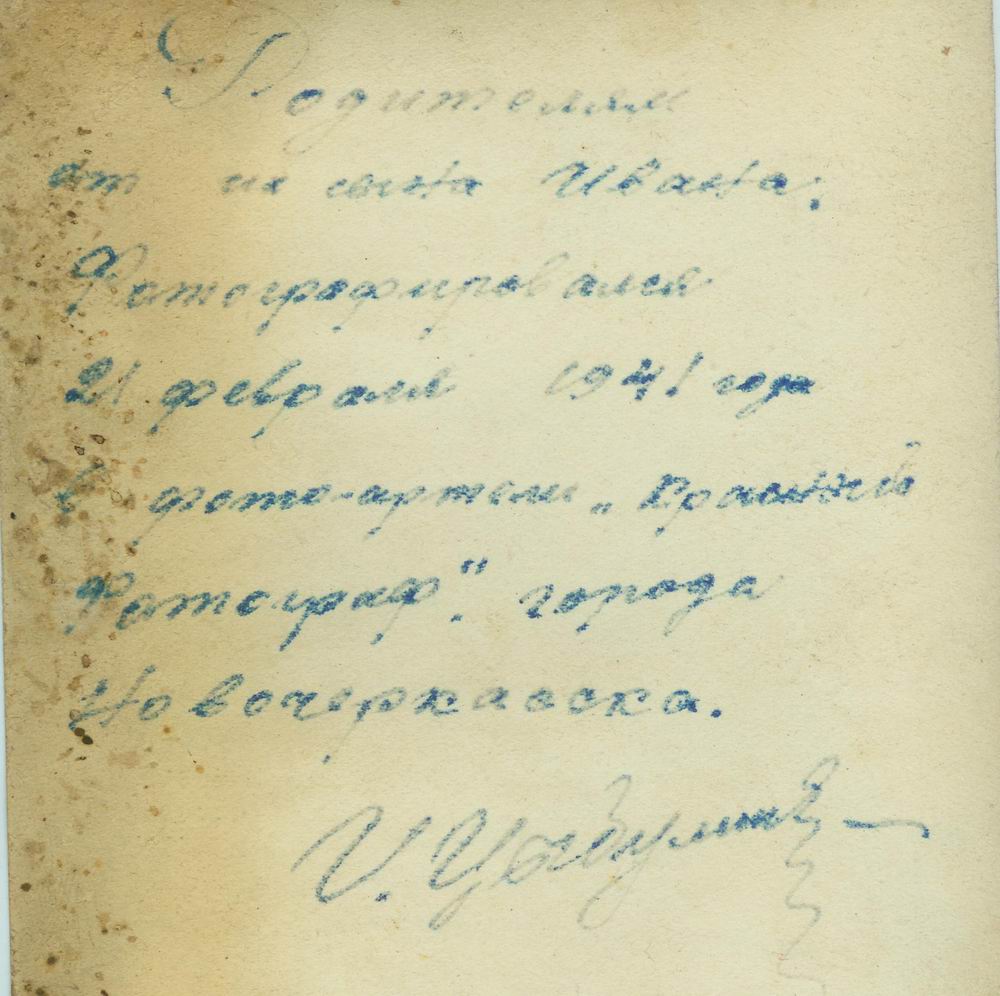 Родителям
от их сына Ивана.
Фотографировался
21 февраля 1941 года
в фото-артели „Красный
Фотограф". города
Новочеркасска.
И.